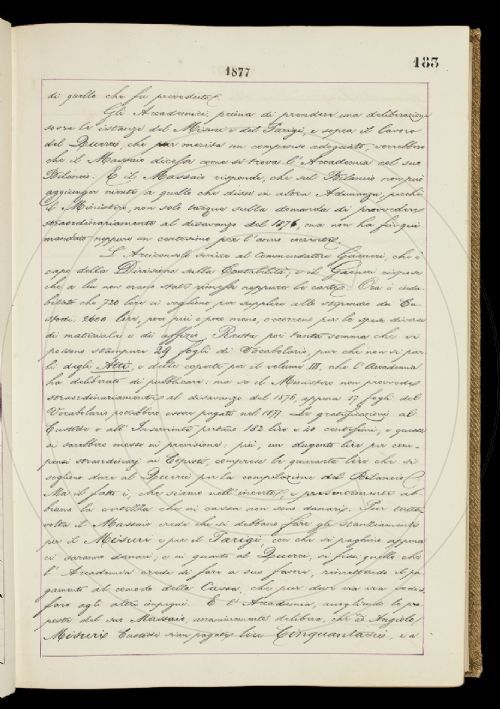 183
1877
di quello che fu preveduto.
Gli Accademici, prima di prendere una deliberazione
sovra le istanze del Misuri e del Parigi, e sopra il lavoro
del Querci, che pur merita un compenso adeguato, vorrebbero
che il Massaio dicesse come si trova l'Accademia col suo
Bilancio. E il Massaio risponde, che sul Bilancio non può
aggiunger niente a quello che disse in altra Adunanza, perchè
il Ministero, non solo tacque sulla domanda di provvedere
straordinariamente al disavanzo del 1876, ma non ha fin qui
mandato neppure un centesimo per l'anno corrente.
L'Arciconsolo scrisse al Commendatore che è
capo della Divisione sulla Contabilità, e il rispose
che a lui non erano stati rimessi neppure le carte. Ora è indu-
bitato che 720 lire ci vogliono per supplire allo stipendio dei Cu-
stodi. 2600 lire, poco più o poco meno, occorrono per le spese diverse
di materiali e di affizio. Resta poi tanta somma che si
possono stampare 29 fogli di Vocabolario, pur che non si par-
li degli Atti, e delle coperte per il volume III, che l'Accademia
ha deliberato di pubblicare: ma se il Ministero non provvede
straordinariamente al disavanzo del 1876, appena 17 fogli del
Vocabolario potrebbero esser pagati nel 1877. Le gratificazioni al
Custode e all'Inserviente portano 182 lire e 40 centesimi, e queste
si sarebbero messe in previsione: più, un dugento lire per com-
pensi straordinarj ai Copisti, comprese le quaranta lire che si
vogliono dare al Querci per la compilazione del Bilancio.
Ma il fatto è, che siamo nell'incerto, e ab-
biamo la certezza che in cassa non sono danari. Pur tutta-
volta il Massaio crede che si debbano fare gli stanziamenti
per il Misuri e per il Parigi, con che si paghino appena
ci saranno danari, e in quanto al Querci, si fissi quello che
l'Accademia crede di fare a suo favore, rimettendo il pa-
gamento al comodo della Cassa, che pur deve via via
fare agli altri impegni. E l'Accademia, accogliendo la pro-
posta del suo Massaio, unanimemente delibera, che ad Angiolo
Misuri Custode sien pagate lire Cinquantasei, e a